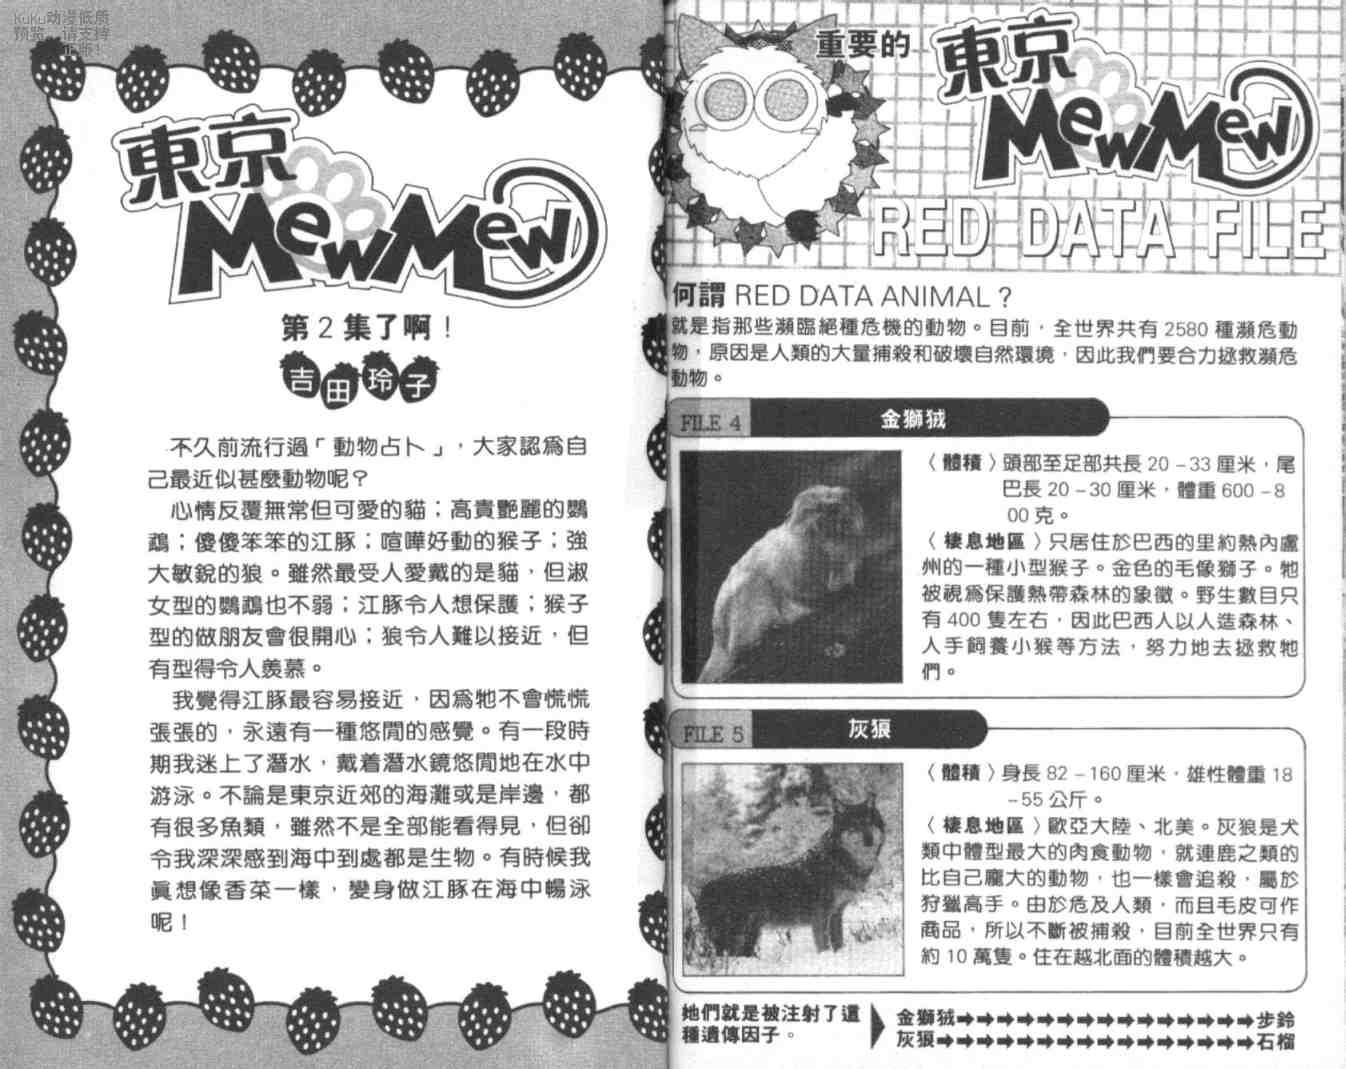 KuKu动漫低质
预览，请支持
正版！
東京
MewMew
第2集了啊！
吉田玲子
不久前流行過「動物占卜」，大家認為自
己最近似甚麼動物呢？
心情反覆無常但可愛的貓；高貴艷麗的鸚
鵡；傻傻笨笨的江豚；喧嘩好動的猴子；強
大敏銳的狼。雖然最受人愛戴的是貓，但淑
女型的鸚鵡也不弱；江豚令人想保護；猴子
型的做朋友會很開心；狼令人難以接近，但
有型得令人羨慕。
我覺得江豚最容易接近，因為牠不會慌慌
張張的，永遠有一種悠閒的感覺。有一段時
期我迷上了潛水，戴着潛水鏡悠閒地在水中
游泳。不論是東京近郊的海灘或是岸邊，都
有很多魚類，雖然不是全部能看得見，但卻
令我深深感到海中到處都是生物。有時候我
真想像香菜一樣，變身做江豚在海中暢泳
呢！
重要的
東京
MewMew
RED DATA FILE
何謂 RED DATA ANIMAL？
就是指那些瀕臨絕種危機的動物。目前，全世界共有2580種瀕危動
物，原因是人類的大量捕殺和破壞自然環境，因此我們要合力拯救瀕危
動物。
FILE 4 金獅狨
〈體積〉頭部至足部共長20－33厘米，尾
巴長20－30厘米，體重600－8
00克。
〈棲息地區〉只居住於巴西的里約熱內盧
州的一種小型猴子。金色的毛像獅子。牠
被視為保護熱帶森林的象徵。野生數目只
有400隻左右，因此巴西人以人造森林、
人手飼養小猴等方法，努力地去拯救牠
們。
FILE 5 灰狼
〈體積〉身長82－160厘米，雄性體重18
－55公斤。
〈棲息地區〉歐亞大陸、北美。灰狼是犬
類中體型最大的肉食動物，就連鹿之類的
比自己龐大的動物，也一樣會追殺，屬於
狩獵高手。由於危及人類，而且毛皮可作
商品，所以不斷被捕殺，目前全世界只有
約10萬隻。住在越北面的體積越大。
她們就是被注射了這
種遺傳因子。
金獅狨➡➡➡➡➡➡➡➡➡➡➡➡➡➡➡步鈴
灰狼➡➡➡➡➡➡➡➡➡➡➡➡➡➡➡➡石榴